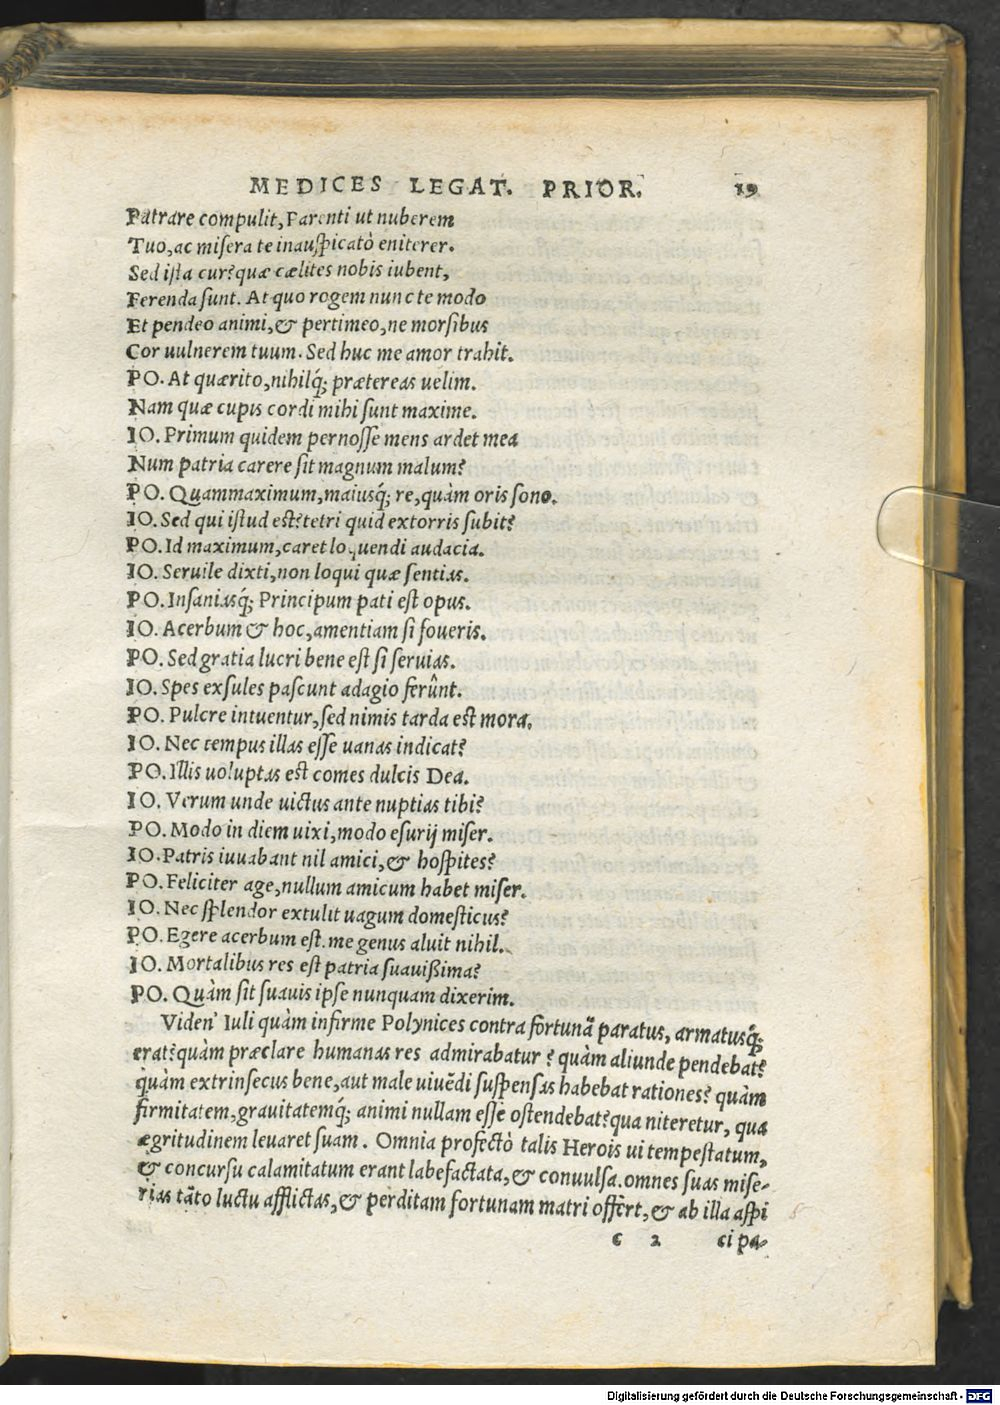 MEDICES LEGAT. PRIOR. 19
Patrare compulit, Parenti ut nuberem
Tuo, ac misera te inauspicatò eniterer.
Sed ista cur? quæ cælites nobis iubent,
Ferenda sunt. At quo rogem nunc te modo
Et pendeo animi, & pertimeo, ne morsibus
Cor uulnerem tuum. Sed huc me amor trahit.
PO. At quærito, nihilq́; prætereas uelim.
Nam quæ cupis cordi mihi sunt maxime.
IO. Primum quidem pernosse mens ardet mea
Num patria carere sit magnum malum?
PO. Quammaximum, maiusq́; re, quàm oris sono.
IO. Sed qui istud est? tetri quid extorris subit?
PO. Id maximum, caret loquendi audacia.
IO. Seruile dixti, non loqui quæ sentias.
PO. Insaniasq́; Principum pati est opus.
IO. Acerbum & hoc, amentiam si foueris.
PO. Sed gratia lucri bene est si seruias.
IO. Spes exsules pascunt adagio ferûnt.
PO. Pulcre intuentur, sed nimis tarda est mora.
IO. Nec tempus illas esse uanas indicat?
PO. Illis uoluptas est comes dulcis Dea.
IO. Verum unde uictus ante nuptias tibi?
PO. Modo in diem uixi, modo esurij miser.
IO. Patris iuuabant nil amici, & hospites?
PO. Feliciter age, nullum amicum habet miser.
IO. Nec splendor extulit uagum domesticus?
PO. Egere acerbum est. me genus aluit nihil.
IO. Mortalibus res est patria suauißima?
PO. Quàm sit suauis ipse nunquam dixerim.
Viden' Iuli quàm infirme Polynices contra fortunā paratus, armatusq́;
erat? quàm præclare humanas res admirabatur? quàm aliunde pendebat?
quàm extrinsecus bene, aut male uiuēdi suspensas habebat rationes? quàm
firmitatem, grauitatemq́; animi nullam esse ostendebat? qua niteretur, qua
ægritudinem leuaret suam. Omnia profectò talis Herois ui tempestatum,
& concursu calamitatum erant labefactata, & conuulsa. omnes suas mise-
rias tāto luctu afflictas, & perditam fortunam matri offert, & ab illa aspi
c 2 cipa-
Digitalisierung gefördert durch die Deutsche Forschungsgemeinschaft - DFG